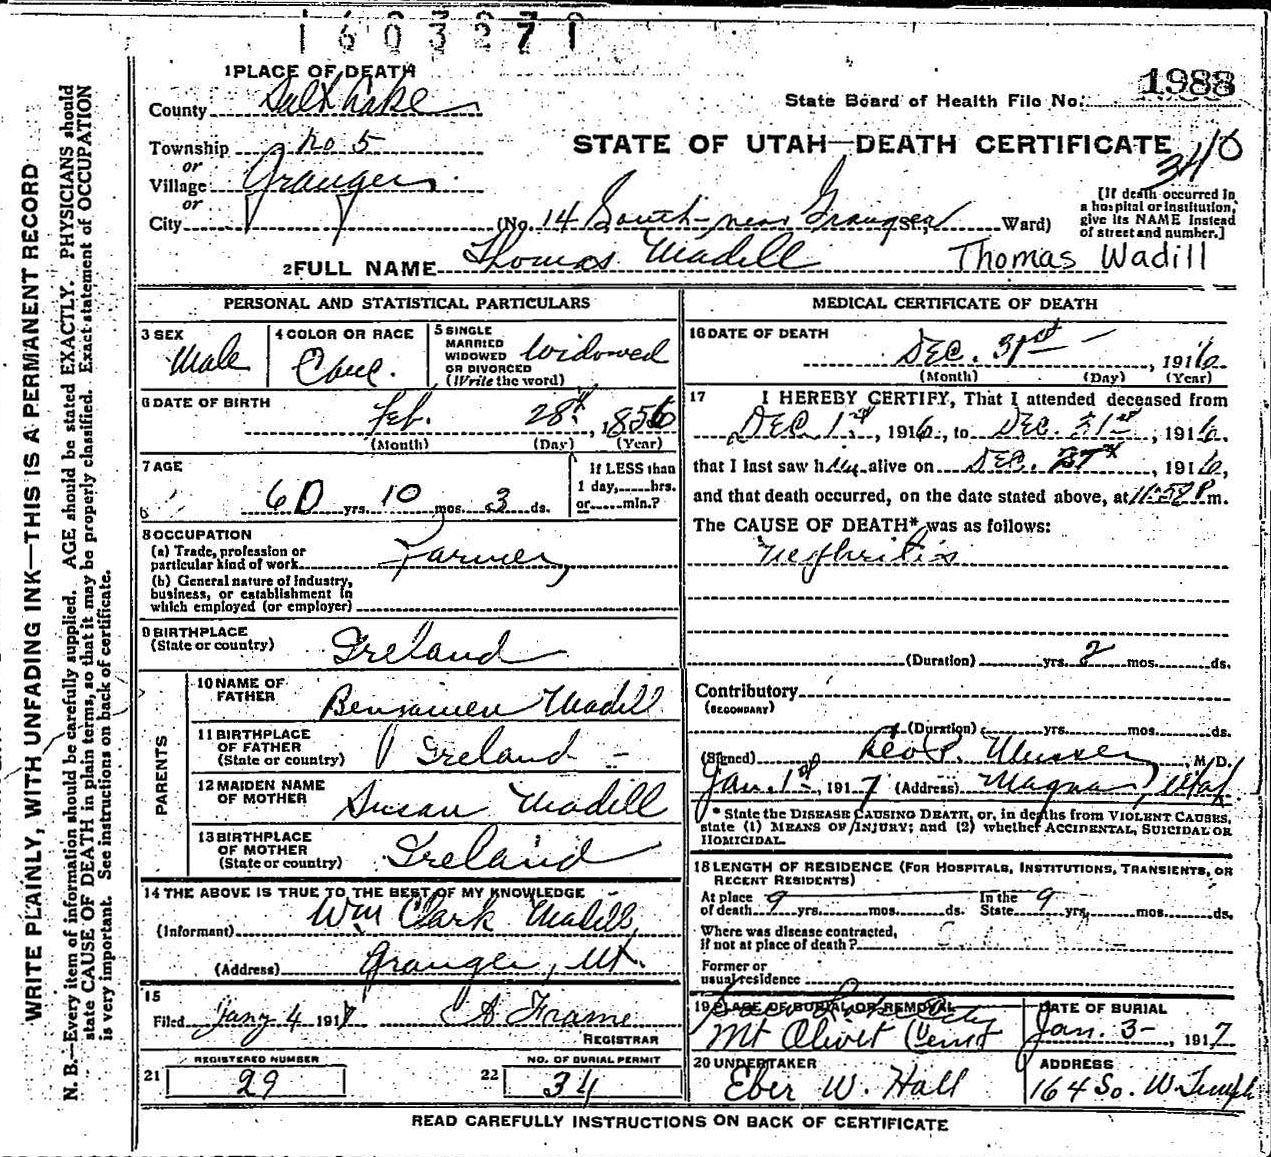 1603271
1 PLACE OF DEATH
County Salt Lake
State Board of Health File No. 1988
Township No 5
STATE OF UTAH—DEATH CERTIFICATE
3410
or
Village Granger
or
City (No. 14 South - near Granger St.; Ward)
[If death occurred in
a hospital or institution,
give its NAME instead
of street and number.]
2 FULL NAME Thomas Wadill Thomas Wadill
PERSONAL AND STATISTICAL PARTICULARS
3 SEX
Male
4 COLOR OR RACE
Cauc.
5 SINGLE
MARRIED
WIDOWED
OR DIVORCED
(Write the word)
Widowed
6 DATE OF BIRTH
Feb. 28th, 1856
(Month) (Day) (Year)
7 AGE
60 yrs. 10 mos. 3 ds.
If LESS than
1 day, hrs.
or min.?
8 OCCUPATION
(a) Trade, profession or
particular kind of work Farmer
(b) General nature of industry,
business, or establishment in
which employed (or employer)
9 BIRTHPLACE
(State or country) Ireland
PARENTS
10 NAME OF
FATHER Benjamen Wadill
11 BIRTHPLACE
OF FATHER
(State or country) Ireland
12 MAIDEN NAME
OF MOTHER Susan Wadill
13 BIRTHPLACE
OF MOTHER
(State or country) Ireland
14 THE ABOVE IS TRUE TO THE BEST OF MY KNOWLEDGE
(Informant) Wm Clark Wadill
(Address) Granger, Ut.
15
Filed Jany 4 1917 A Frame
REGISTRAR
REGISTERED NUMBER
21 29
NO. OF BURIAL PERMIT
22 34
MEDICAL CERTIFICATE OF DEATH
16 DATE OF DEATH
Dec. 31st, 1916
(Month) (Day) (Year)
17 I HEREBY CERTIFY, That I attended deceased from
Dec. 1st, 1916, to Dec. 31st, 1916.
that I last saw him alive on Dec. , 1916,
and that death occurred, on the date stated above, at 11:58 P m.
The CAUSE OF DEATH* was as follows:
Nephritis
(Duration) yrs. 2 mos. ds.
Contributory
(SECONDARY)
(Duration) yrs. mos. ds.
(Signed) Leo P. Musser, M.D.
Jan. 1st, 1917 (Address) Magna, Utah.
* State the DISEASE CAUSING DEATH, or, in deaths from VIOLENT CAUSES,
state (1) MEANS OF INJURY; and (2) whether ACCIDENTAL, SUICIDAL OR
HOMICIDAL.
18 LENGTH OF RESIDENCE (FOR HOSPITALS, INSTITUTIONS, TRANSIENTS, OR
RECENT RESIDENTS)
At place
of death 9 yrs. mos. ds.
In the
State 9 yrs. mos. ds.
Where was disease contracted,
If not at place of death?
Former or
usual residence
19 PLACE OF BURIAL OR REMOVAL
Mt Olivet Cemt
DATE OF BURIAL
Jan. 3-, 1917
20 UNDERTAKER
Eber W. Hall
ADDRESS
164 So. W. Temple
READ CAREFULLY INSTRUCTIONS ON BACK OF CERTIFICATE
WRITE PLAINLY, WITH UNFADING INK—THIS IS A PERMANENT RECORD
N. B.—Every item of information should be carefully supplied. AGE should be stated EXACTLY. PHYSICIANS should
state CAUSE OF DEATH in plain terms, so that it may be properly classified. Exact statement of OCCUPATION
is very important. See instructions on back of certificate.